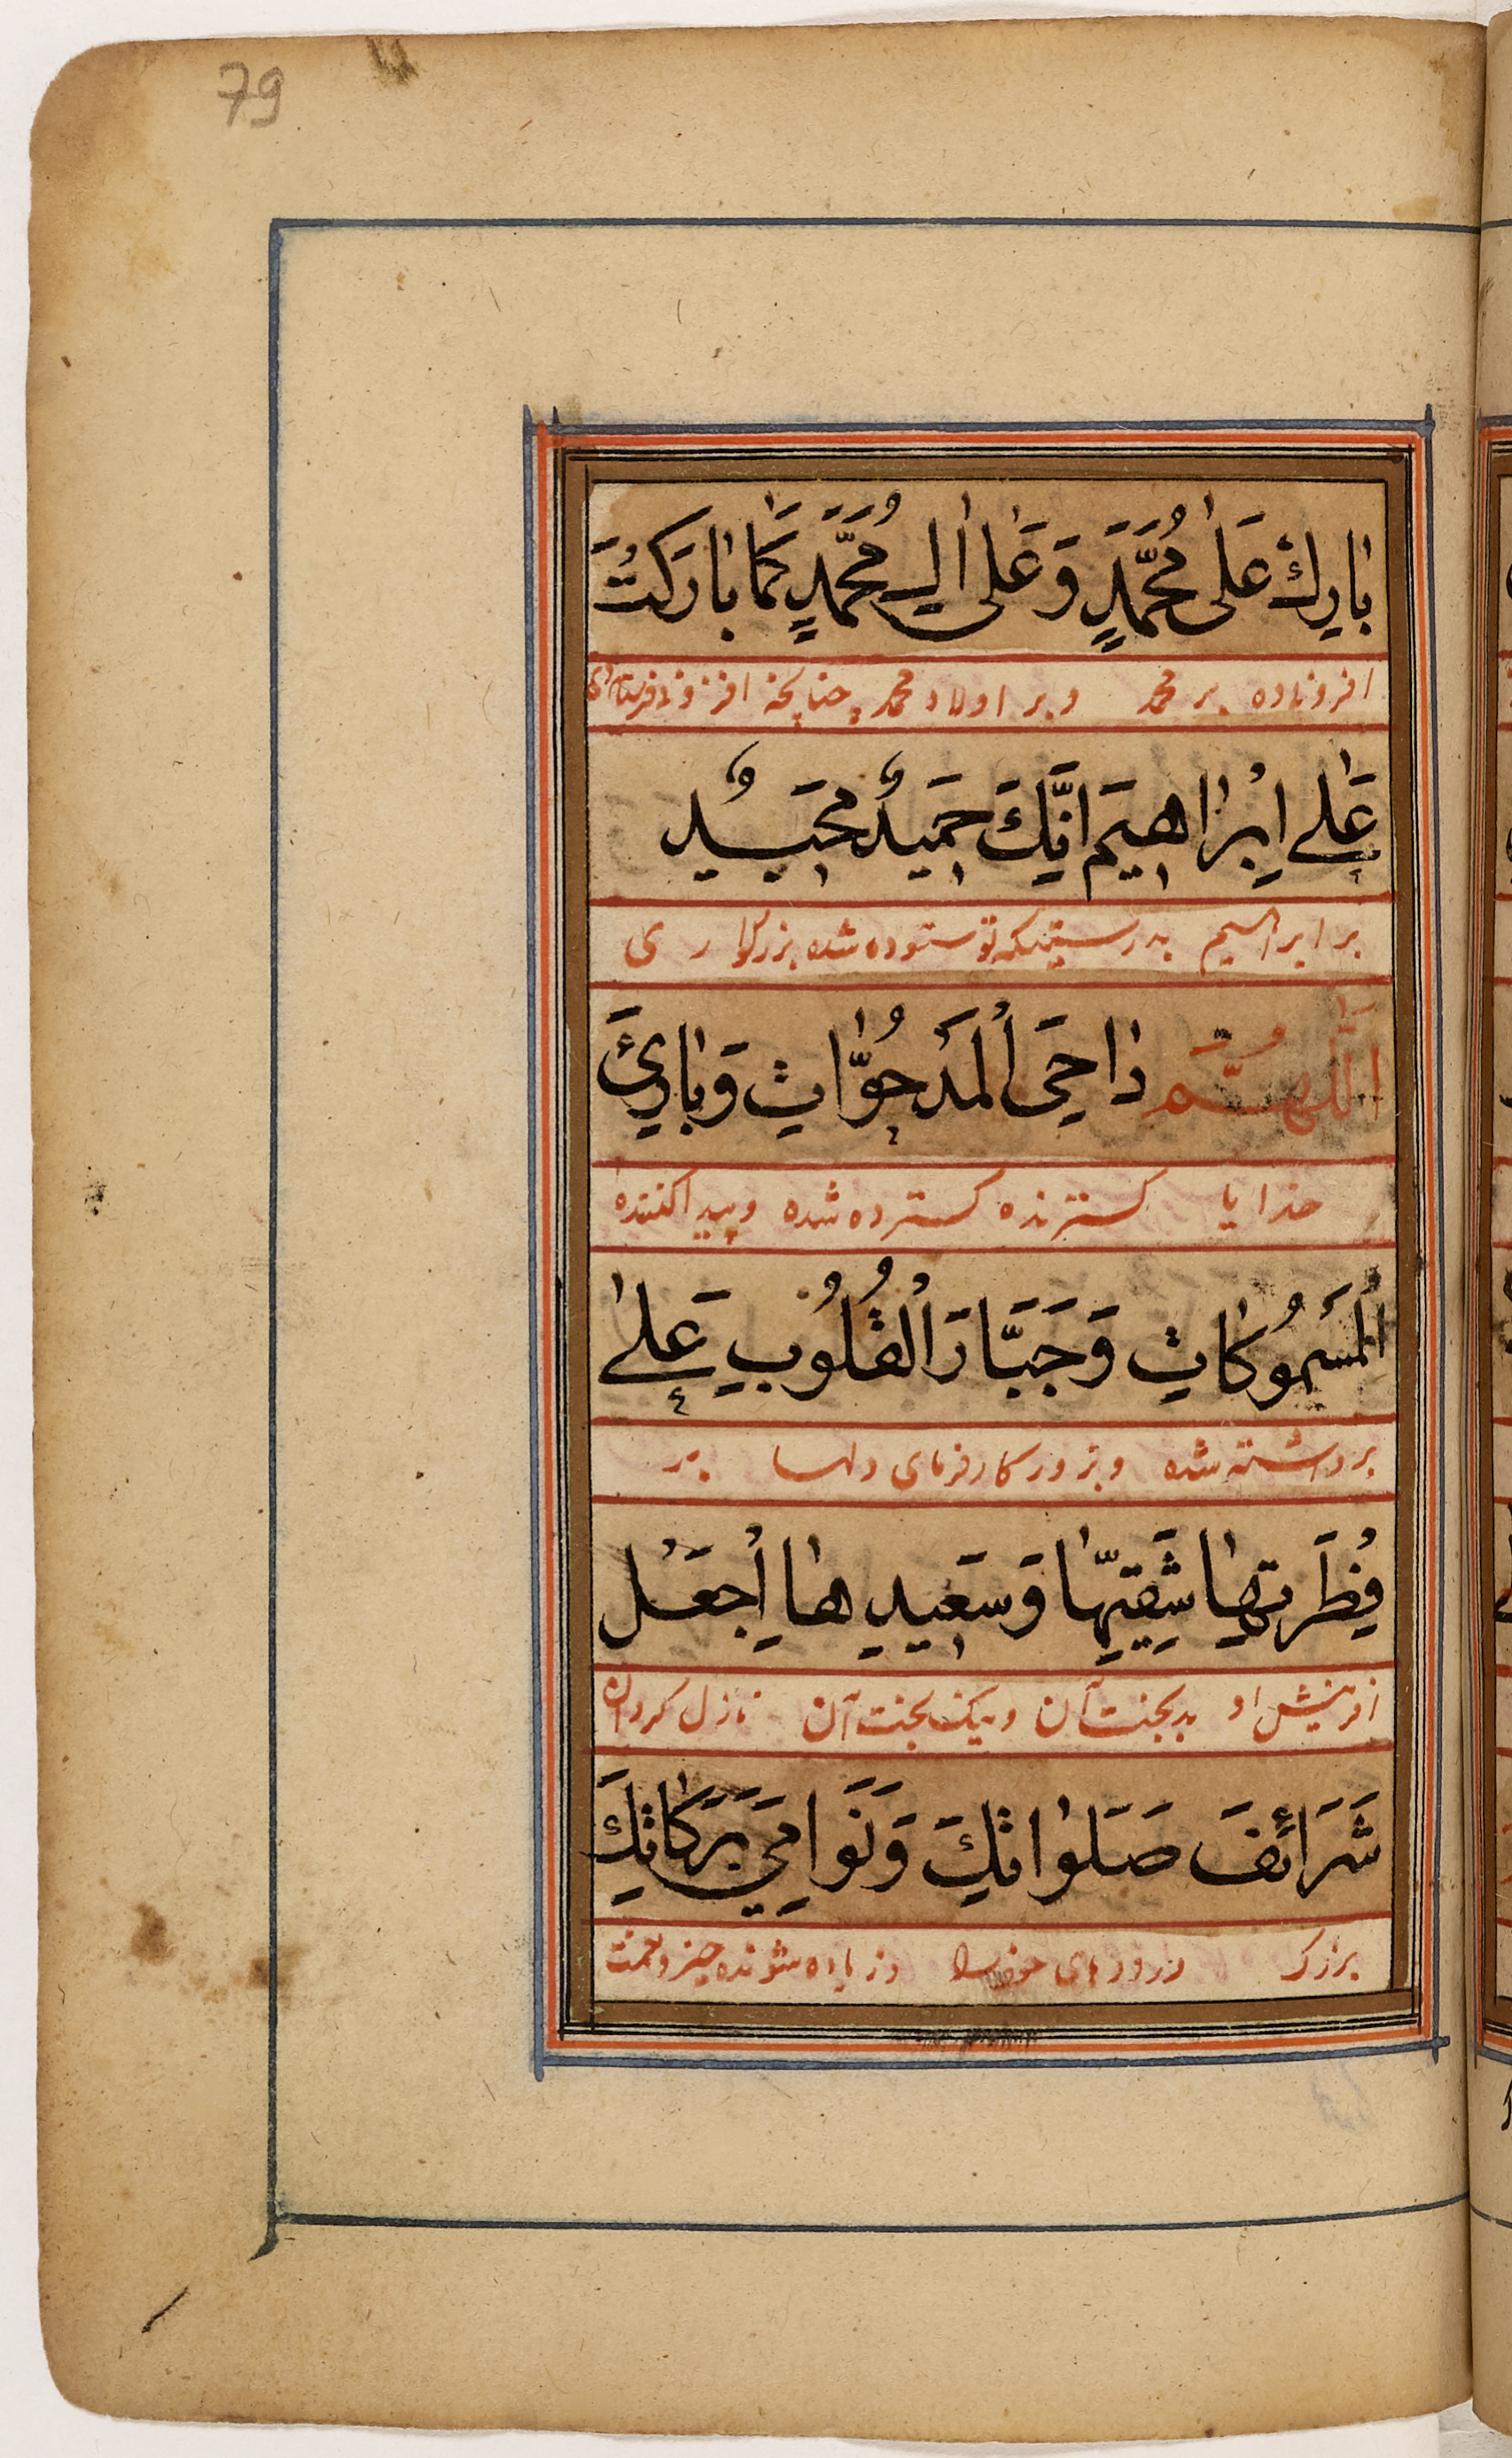 79
بٰارِكْ عَلٰى مُحَمَّدٍ وَعَلٰى اٰلِ مُحَمَّدٍ كَمٰا بٰارَكْتَ
افزونی ده بر محمد و بر اولاد محمد چنانچه افزونی فرستاده
عَلٰى اِبْرٰاهِيمَ اِنَّكَ حَمِيدٌ مَجِيدٌ
بر ابراهیم بدرستیکه تو ستوده شده بزرگواری
اَللّٰهُمَّ دٰاحِيَ الْمَدْحُوّٰاتِ وَبٰارِئَ
خدایا گسترنده گسترده شده و پیدا کننده
الْمَسْمُوكٰاتِ وَجَبَّارَ الْقُلُوبِ عَلٰى
برداشته شده و بزور کارفرمای دلها بر
فِطْرَتِهٰا شَقِيِّهٰا وَسَعِيدِهٰا اِجْعَلْ
افرینش او بدبخت آن و نیکبخت آن نازل کردان
شَرَائِفَ صَلَوٰاتِكَ وَنَوَامِيَ بَرَكٰاتِكَ
بزرک درودهای خود را و زیاده شونده چیز و نعمت